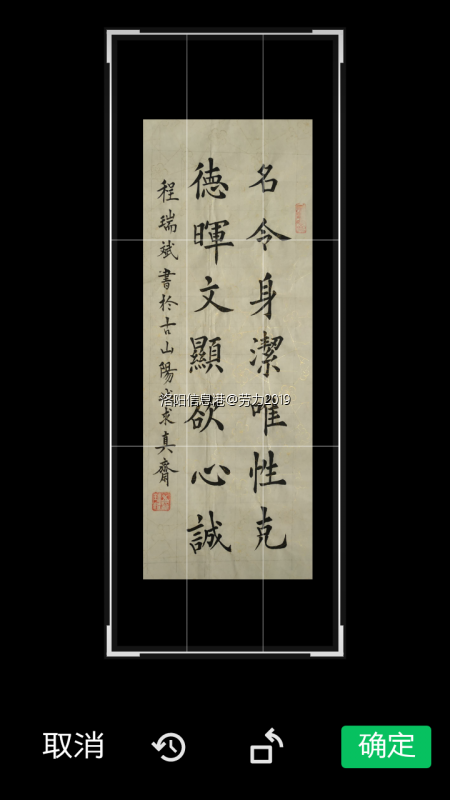 名令身潔唯性克
德暉文顯欲心誠
程瑞斌書於古山陽
求真齋
洛阳信息港@劳力2019
取消
确定